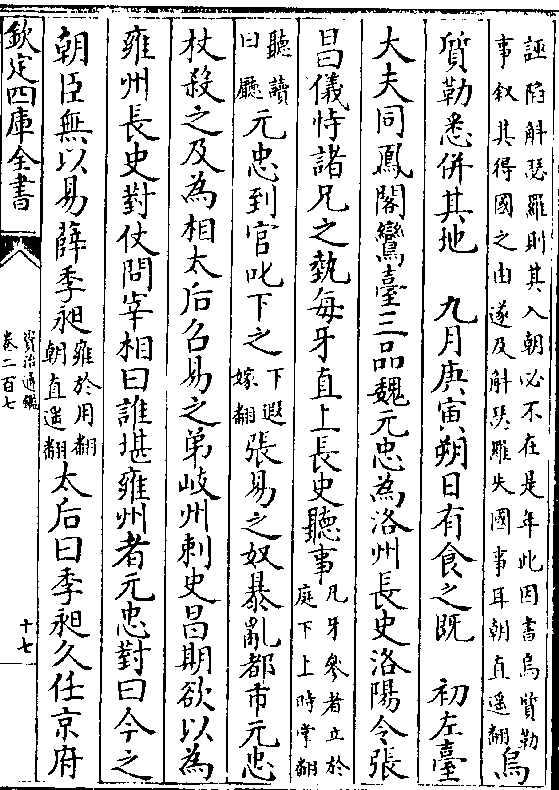 誣陷斛瑟羅則其入朝必不在是年此因書烏質勒
事叙其得國之由遂及斛瑟羅失國事耳朝直遥翻
烏
質勒悉併其地　九月庚寅朔日有食之既　初左臺
大夫同鳳閣鸞臺三品魏元忠為洛州長史洛陽令張
昌儀恃諸兄之埶每牙直上長史聽事
凡牙參者立於
庭下上時掌翻
聽讀
曰廳
元忠到官叱下之
下遐
嫁翻
張易之奴暴亂都市元忠
杖殺之及為相太后召易之弟岐州刺史昌期欲以為
雍州長史對仗問宰相曰誰堪雍州者元忠對曰今之
朝臣無以易薛季昶
雍於用翻
朝直遥翻
太后曰季昶久任京府
欽定四庫全書
資治通鑑
卷二百七
十七